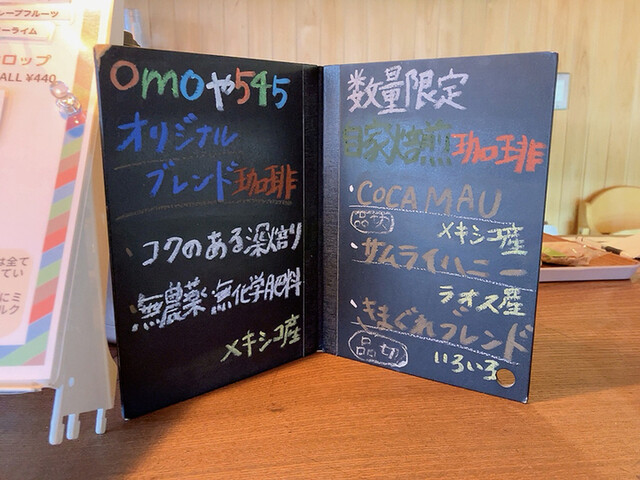 レープフルーツ
ーライム
ロップ
ALL ¥440
は全て
てい
にミ
ルク
omoや545
オリジナル
ブレンド珈琲
・コクのある深焙り
・無農薬・無化学肥料
メキシコ産
数量限定
自家焙煎珈琲
・COCAMAU
品切
メキシコ産
・サムライハニー
ラオス産
・きまぐれブレンド
品切
いろいろ